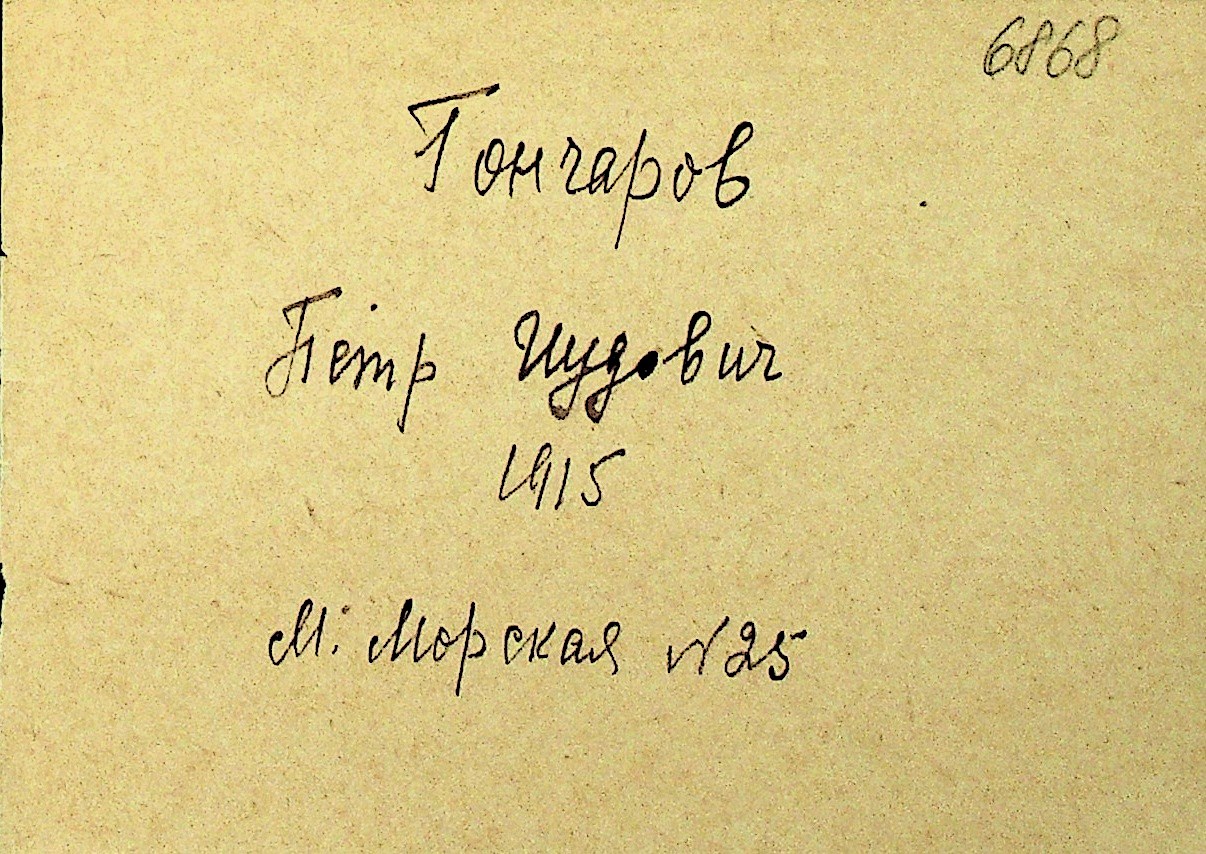 6868
Гончаров
Пётр Иудович
1915
М. Морская N25